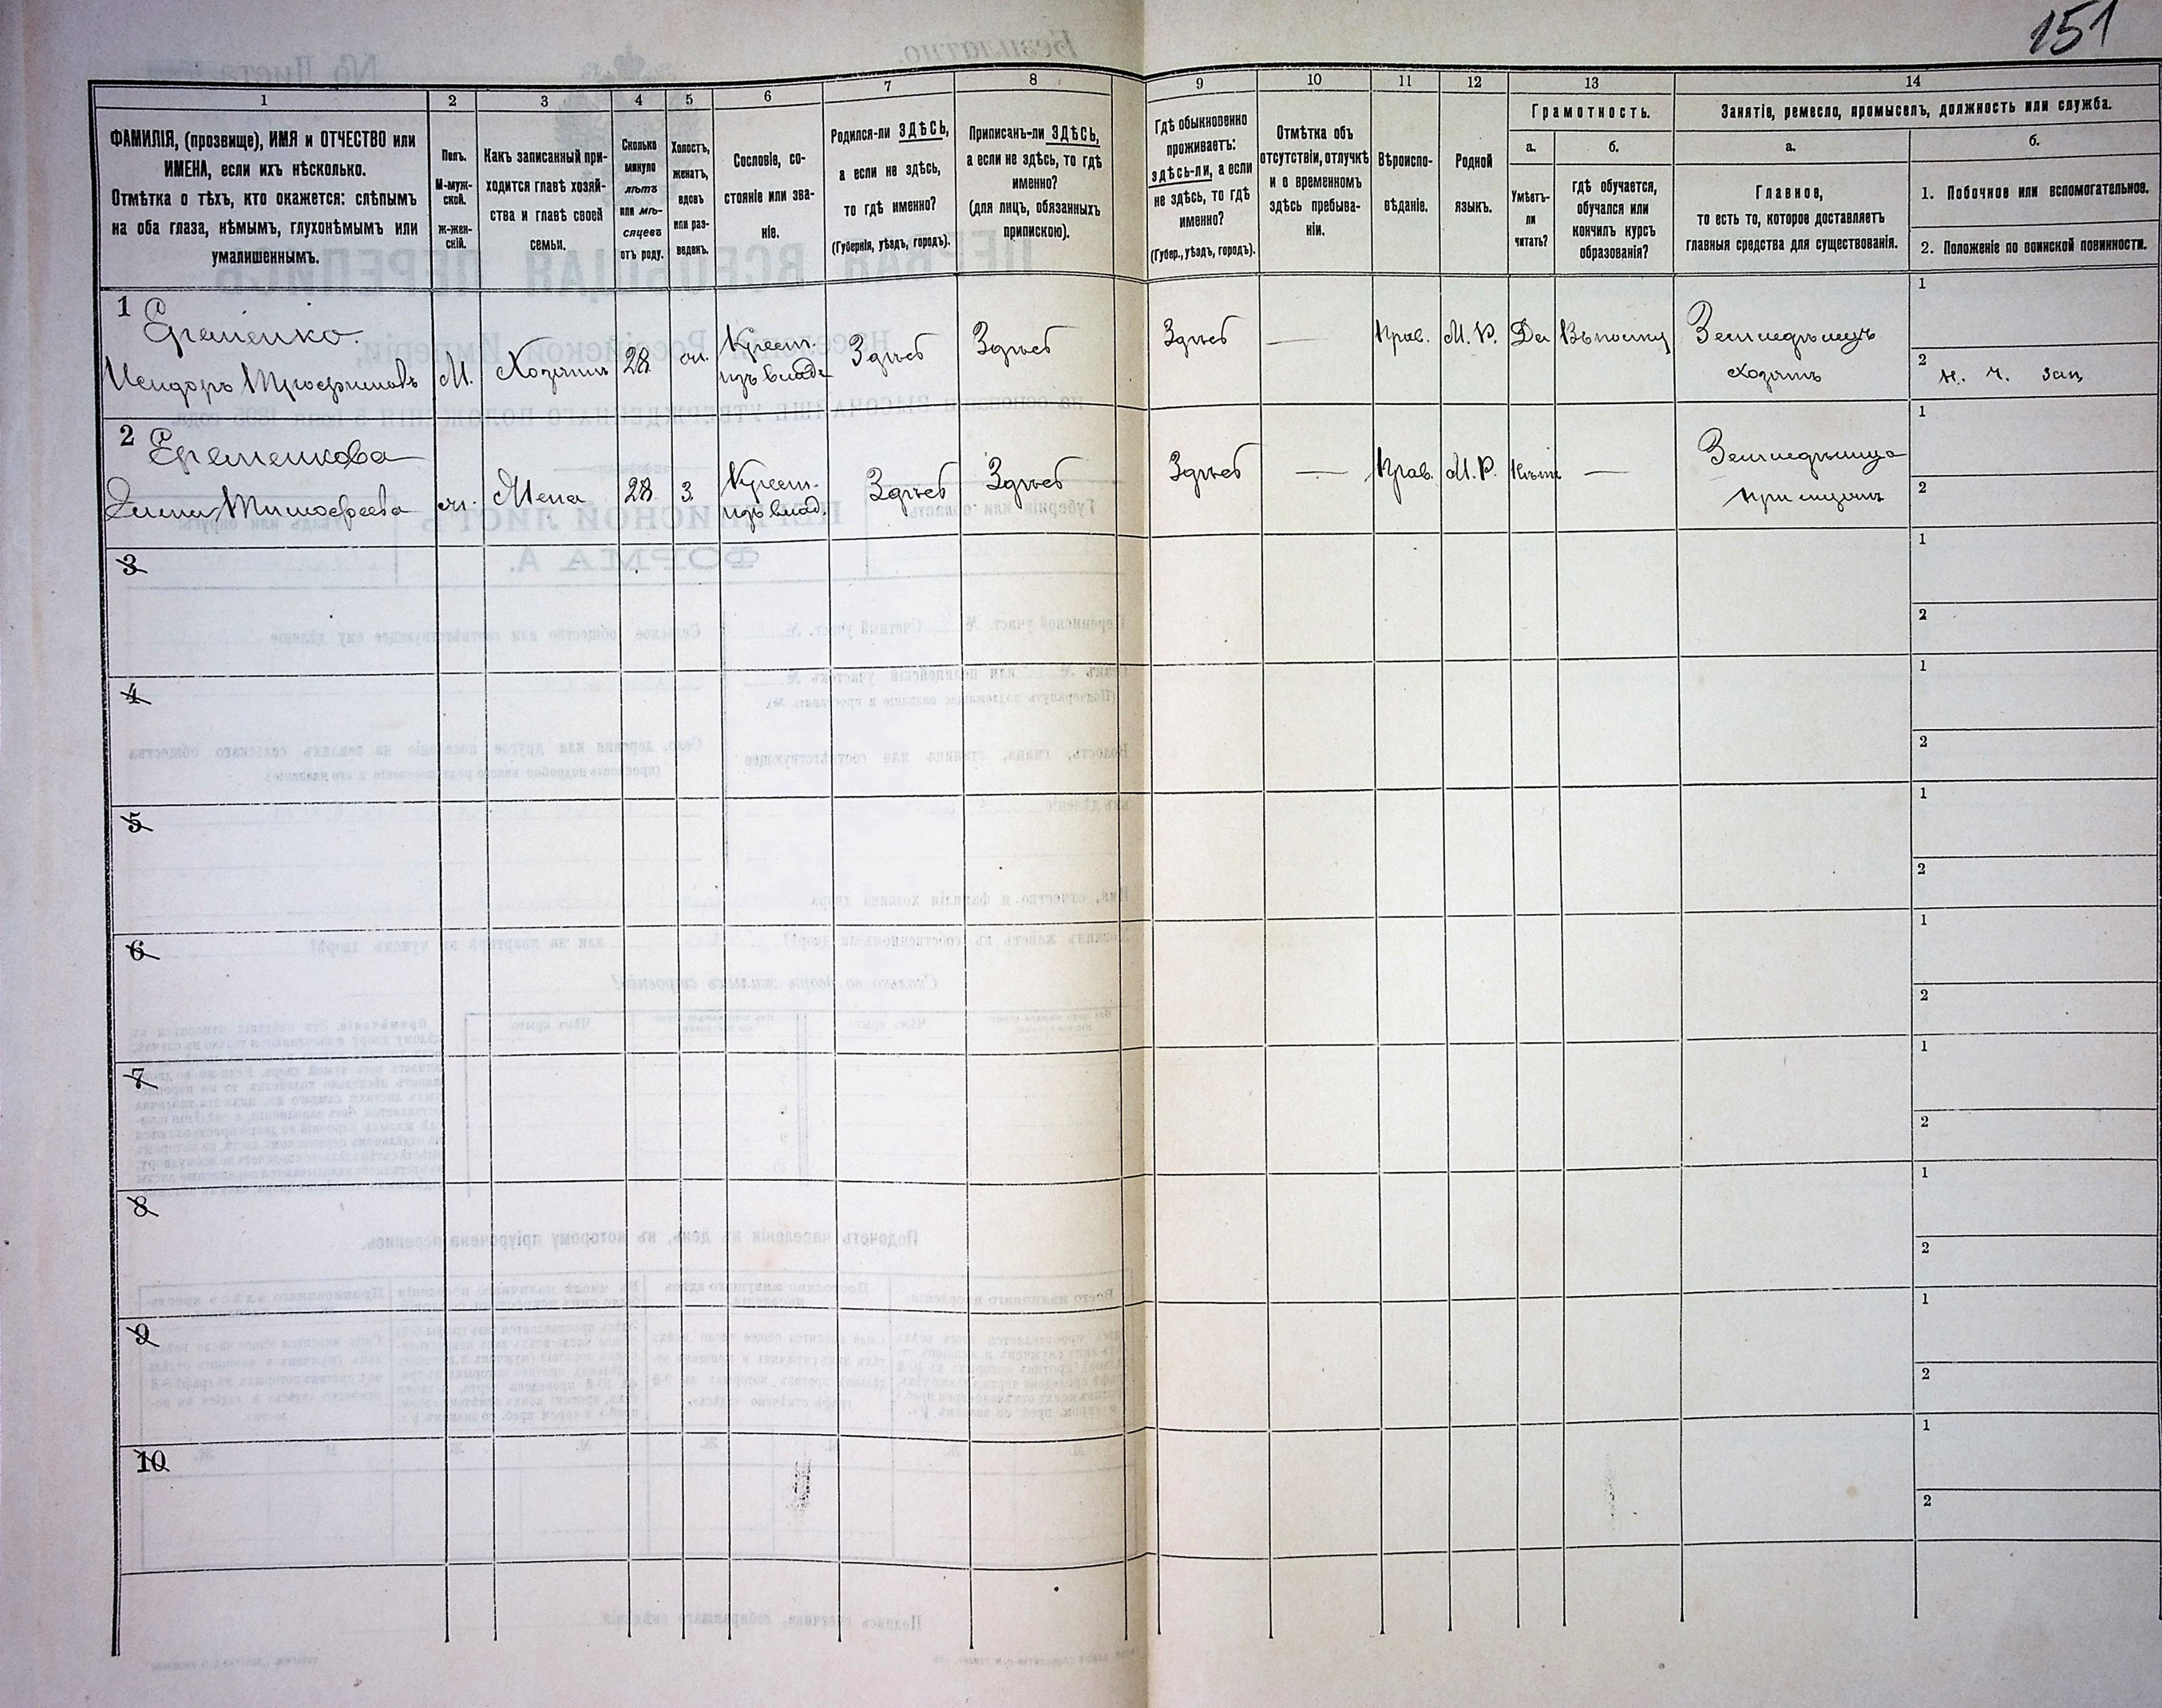 151
1
2
3
4
5
6
7
8
9
10
11
12
13
14
ФАМИЛІЯ, (прозвище), ИМЯ и ОТЧЕСТВО или
ИМЕНА, если ихъ нѣсколько.
Отмѣтка о тѣхъ, кто окажется: слѣпымъ
на оба глаза, нѣмымъ, глухонѣмымъ или
умалишеннымъ.
Полъ.
М-муж-
ской.
ж-жен-
скій.
Какъ записанный при-
ходится главѣ хозяй-
ства и главѣ своей
семьи.
Сколько
минуло
лѣтъ
или мѣ-
сяцевъ
отъ роду.
Холостъ,
женатъ,
вдовъ
или раз-
веденъ.
Сословіе, со-
стояніе или зва-
ніе.
Родился-ли ЗДѢСЬ,
а если не здѣсь,
то гдѣ именно?
(Губернія, уѣздъ, городъ).
Приписанъ-ли ЗДѢСЬ,
а если не здѣсь, то гдѣ
именно?
(для лицъ, обязанныхъ
припискою).
Гдѣ обыкновенно
проживаетъ:
здѣсь-ли, а если
не здѣсь, то гдѣ
именно?
(Губер., уѣздъ, городъ).
Отмѣтка объ
отсутствіи, отлучкѣ
и о временномъ
здѣсь пребыва-
ніи.
Вѣроиспо-
вѣданіе.
Родной
языкъ.
Грамотность.
а.
Умѣетъ-
ли
читать?
б.
гдѣ обучается,
обучался или
кончилъ курсъ
образованія?
Занятіе, ремесло, промыселъ, должность или служба.
а.
Главное,
то есть то, которое доставляетъ
главныя средства для существованія.
б.
1. Побочное или вспомогательное.
2. Положеніе по воинской повинности.
1
Еременко.
Исидоръ Трофимовъ
М.
Хозяинъ
28
ж.
Крест.
изъ влад.
Здѣсь
Здѣсь
Здѣсь
—
Прав.
М. Р.
Да
Земледѣлецъ
хозяинъ
1
2
н. ч. зап.
2
Еременкова
Тимофеева
ж.
Жена
28
З.
Крест.
изъ влад.
Здѣсь
Здѣсь
Здѣсь
—
Прав.
М. Р.
Нѣтъ
—
Земледѣлица
при мужѣ
1
2
3
1
2
4
1
2
5
1
2
6
1
2
7
1
2
8
1
2
9
1
2
10
1
2